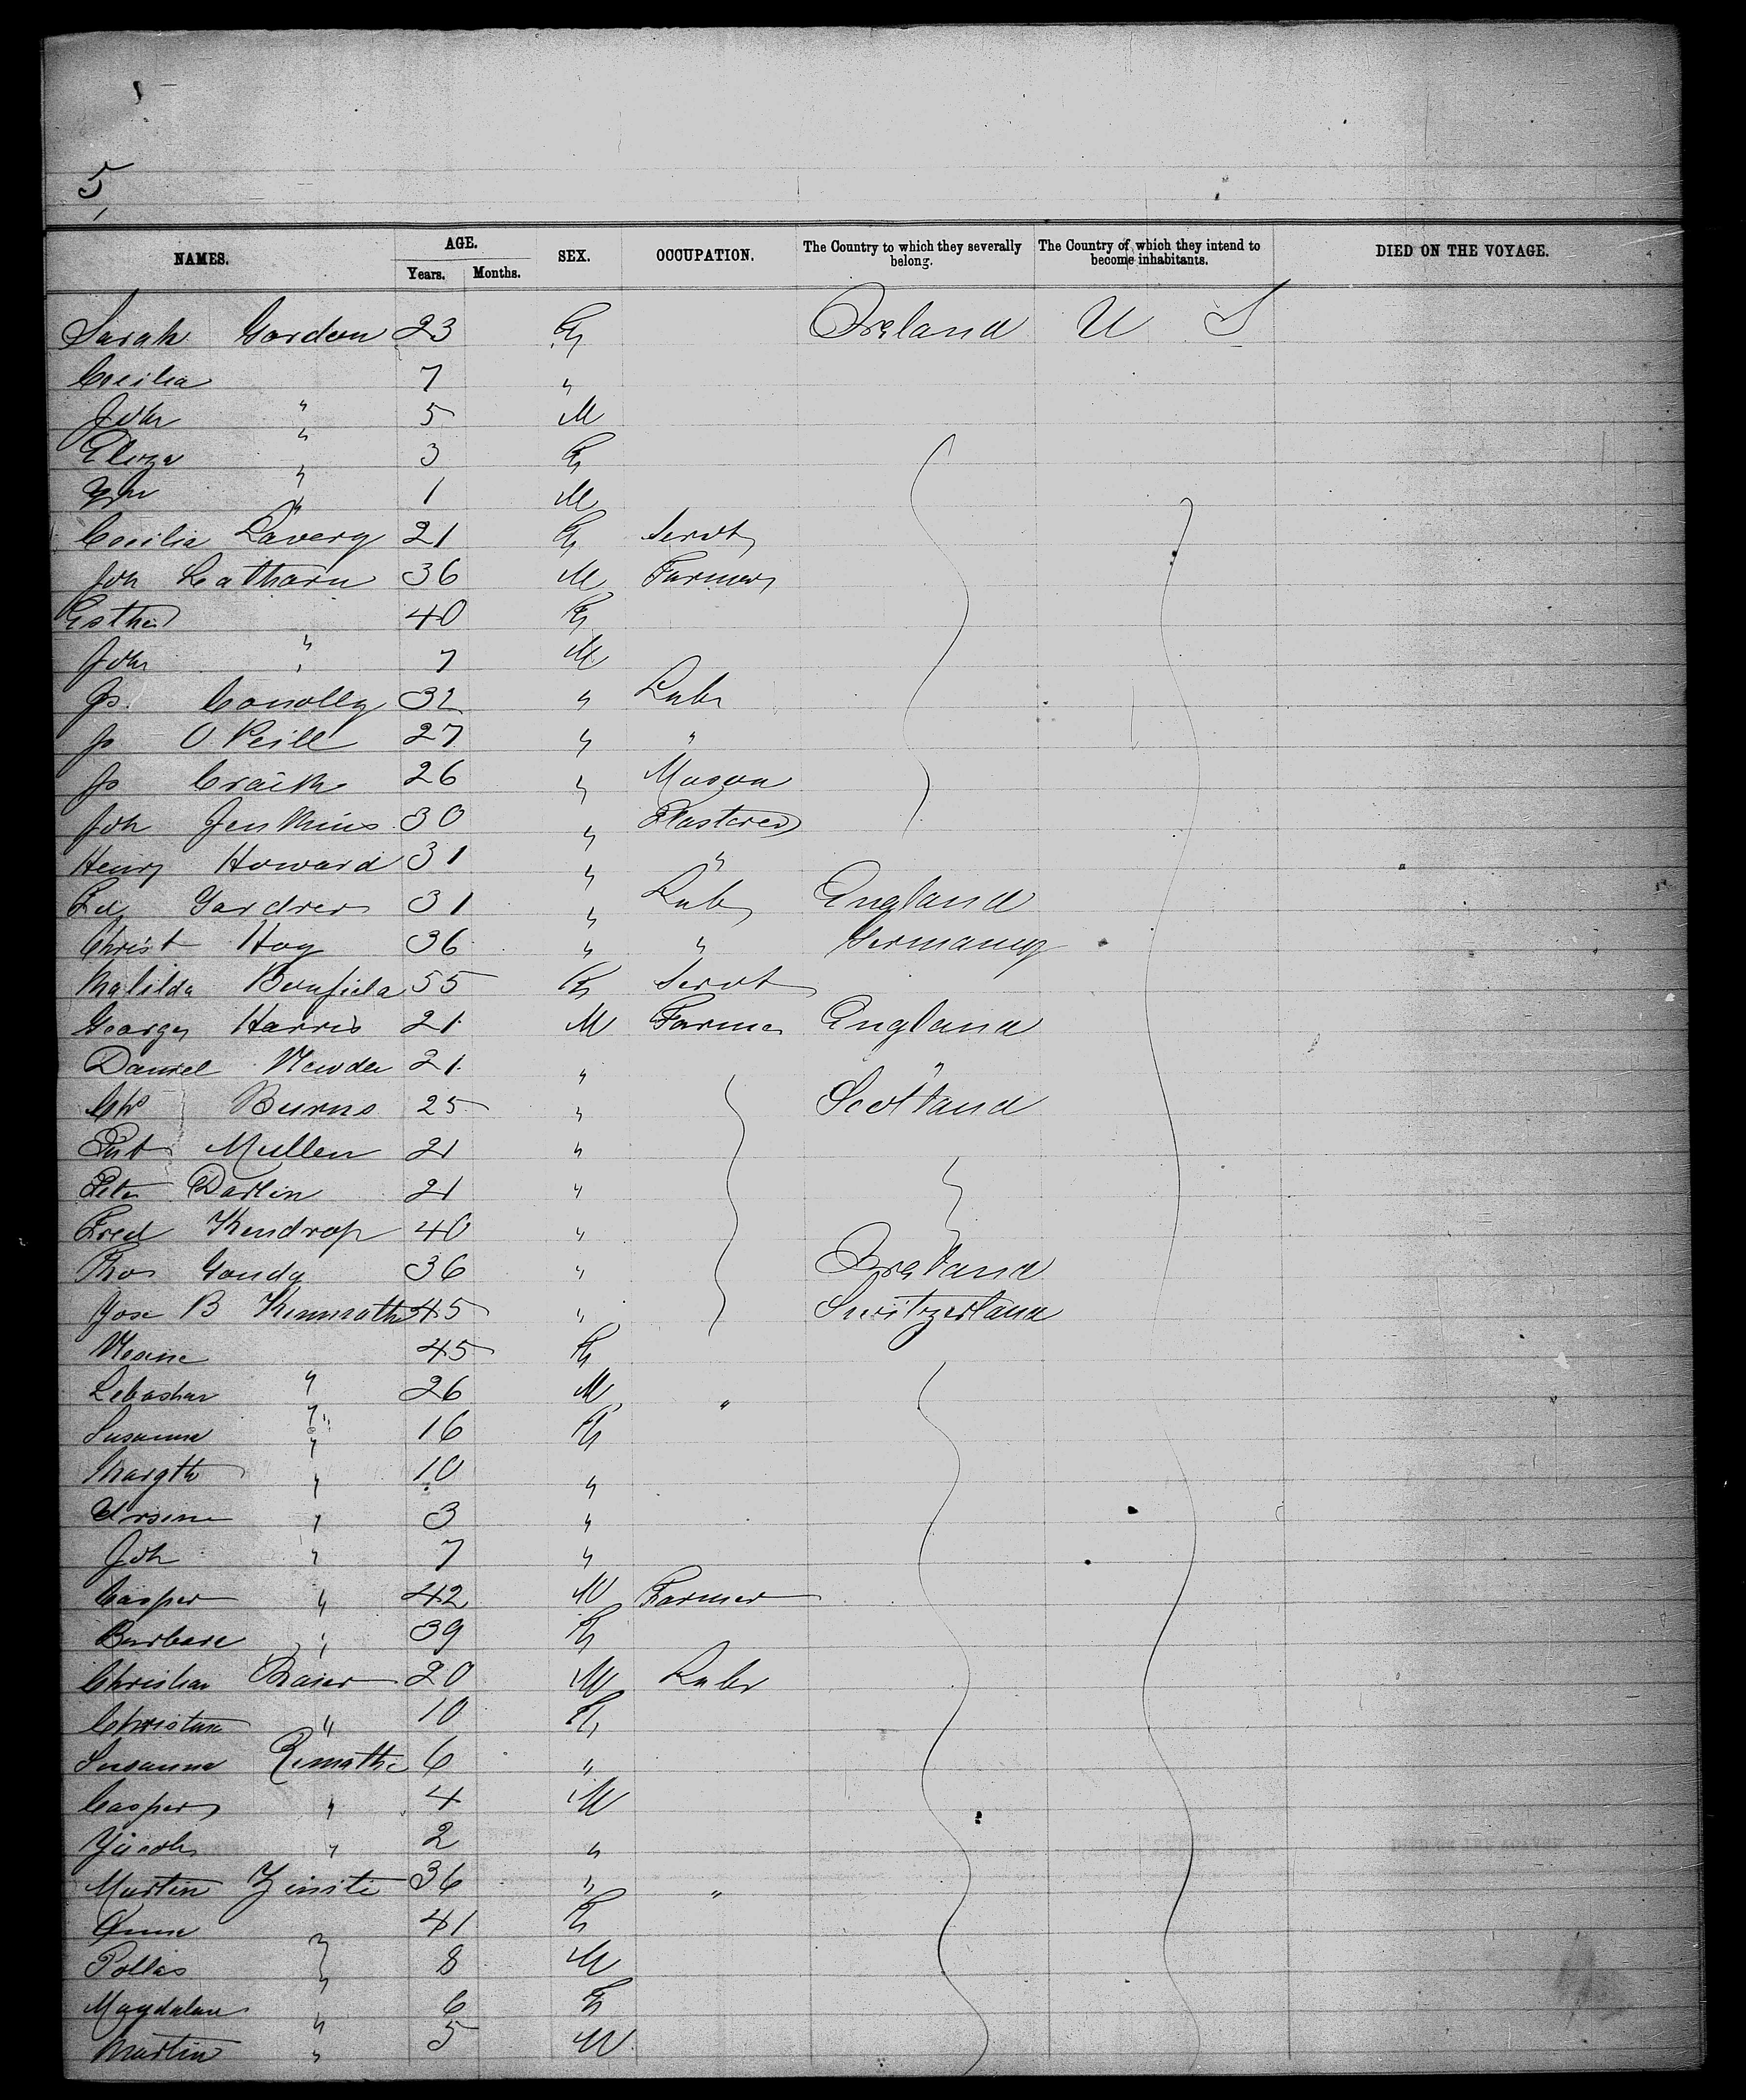 5
NAMES. AGE. SEX. OCCUPATION. The Country to which they severally belong. The Country of which they intend to become inhabitants. DIED ON THE VOYAGE.
Years. Months.
Sarah Gordon 23 F Ireland U S
Cecilia 7 "
Joh " 5 M
Eliza " 3 F
Wm " 1 M
Cecilia Lavery 21 F Servt
Joh Latham 36 M Farmer
Esther 40 F
Joh " 7 M
Js Conolly 32 " Labr
Js O Neill 27 " "
Js Craik 26 " Mason
Joh Jenkins 30 " Plasterer
Henry Howard 31 " "
Ed Gardner 31 " Lab England
Christ Hoy 36 " " Germany
Matilda 55 F Servt
George Harris 21 M Farmer England
Daniel 21 " "
Chs Burns 25 " Scotland
Pat Mullen 21 "
Peter Darlin 21 "
Fred Kendrop 40 "
Thos Goudy 36 " Ireland
Jos B 45 " Switzerland
45 F
" 26 M "
Susanna " 16 F
Margth " 10 "
Ursina " 3 "
Joh " 7 "
Casper " 42 M Farmer
Barbara " 39 F
Christian 20 M Labr
Christina " 10 F
Susanna Rimathe 6 "
Casper " 4 M
Jacob " 2 "
Martin 36 " "
Anna 41 F
" 8 M
Magdalena " 6 F
Martin " 5 M